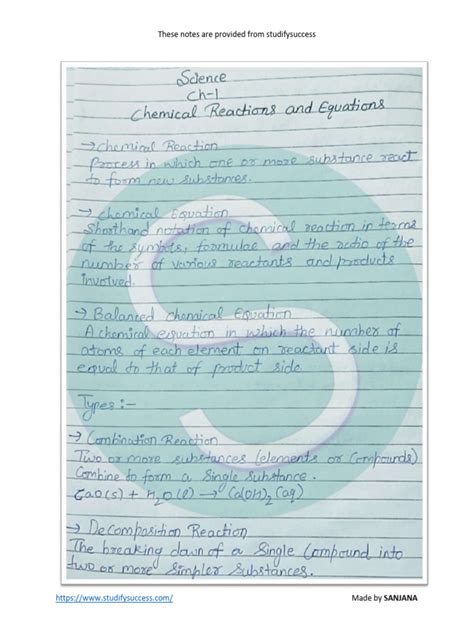 These notes are provided from studifysuccess
Science
Ch-1
Chemical Reactions and Equations
→ Chemical Reaction
Process in which one or more substance react
to form new substances.
→ Chemical Equation
Shorthand notation of chemical reaction in terms
of the symbols, formulae and the ratio of the
number of various reactants and products
involved.
→ Balanced Chemical Equation
A chemical equation in which the number of
atoms of each element on reactant side is
equal to that of product side.
Types :-
→ Combination Reaction
Two or more substances (elements or Compounds)
Combine to form a Single Substance.
CaO(s) + H₂O(l) → Ca(OH)₂(aq)
→ Decomposition Reaction
The breaking down of a Single Compound into
two or more Simpler Substances.
https://www.studifysuccess.com/
Made by SANJANA